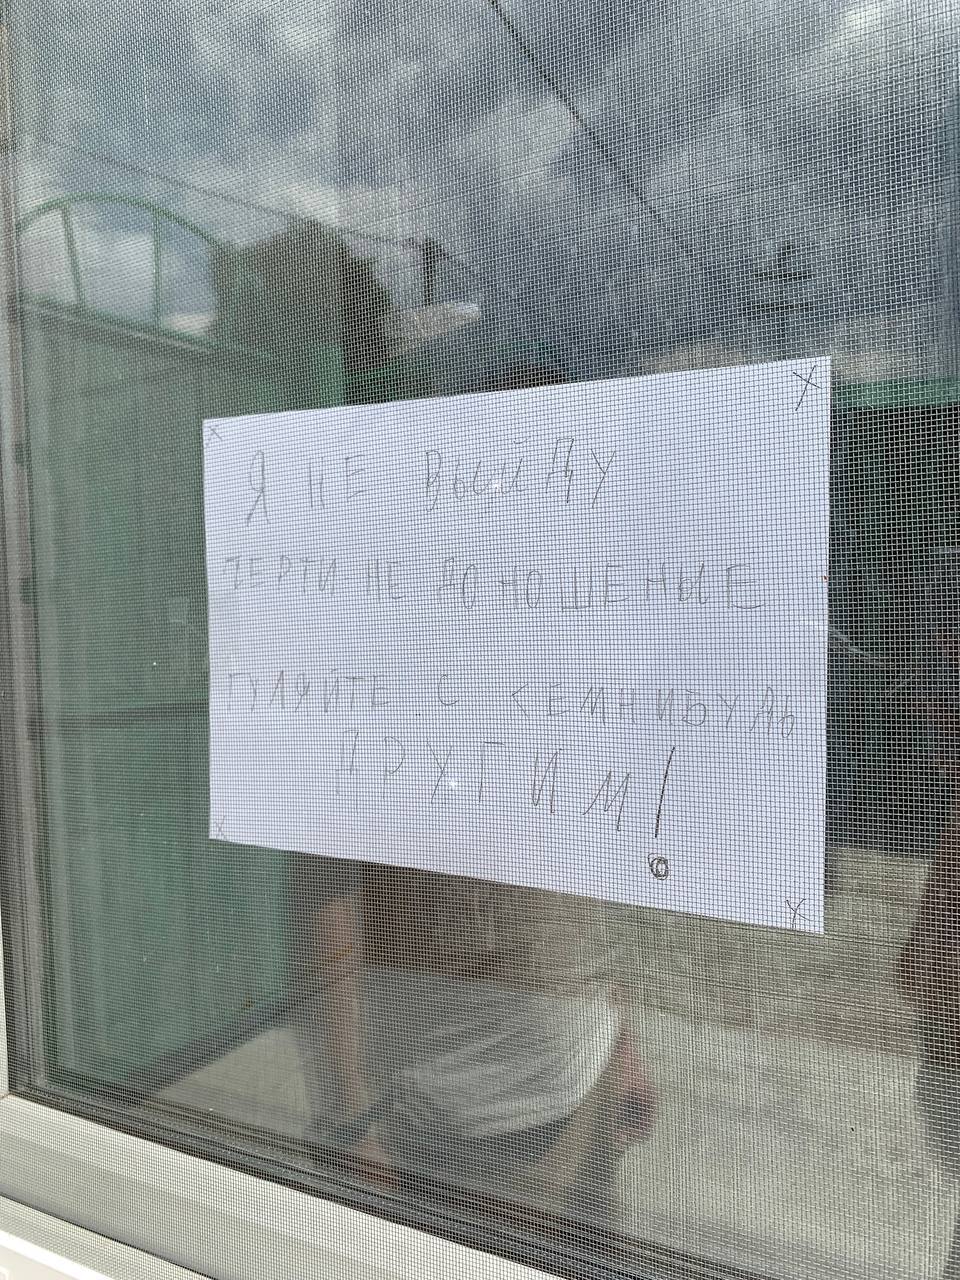 Я НЕ ВЫЙДУ
ЧЕРТИ НЕ ДОНОШЕНЫЕ
ГУЛЯЙТЕ С КЕМНИБУДЬ
ДРУГИМ!